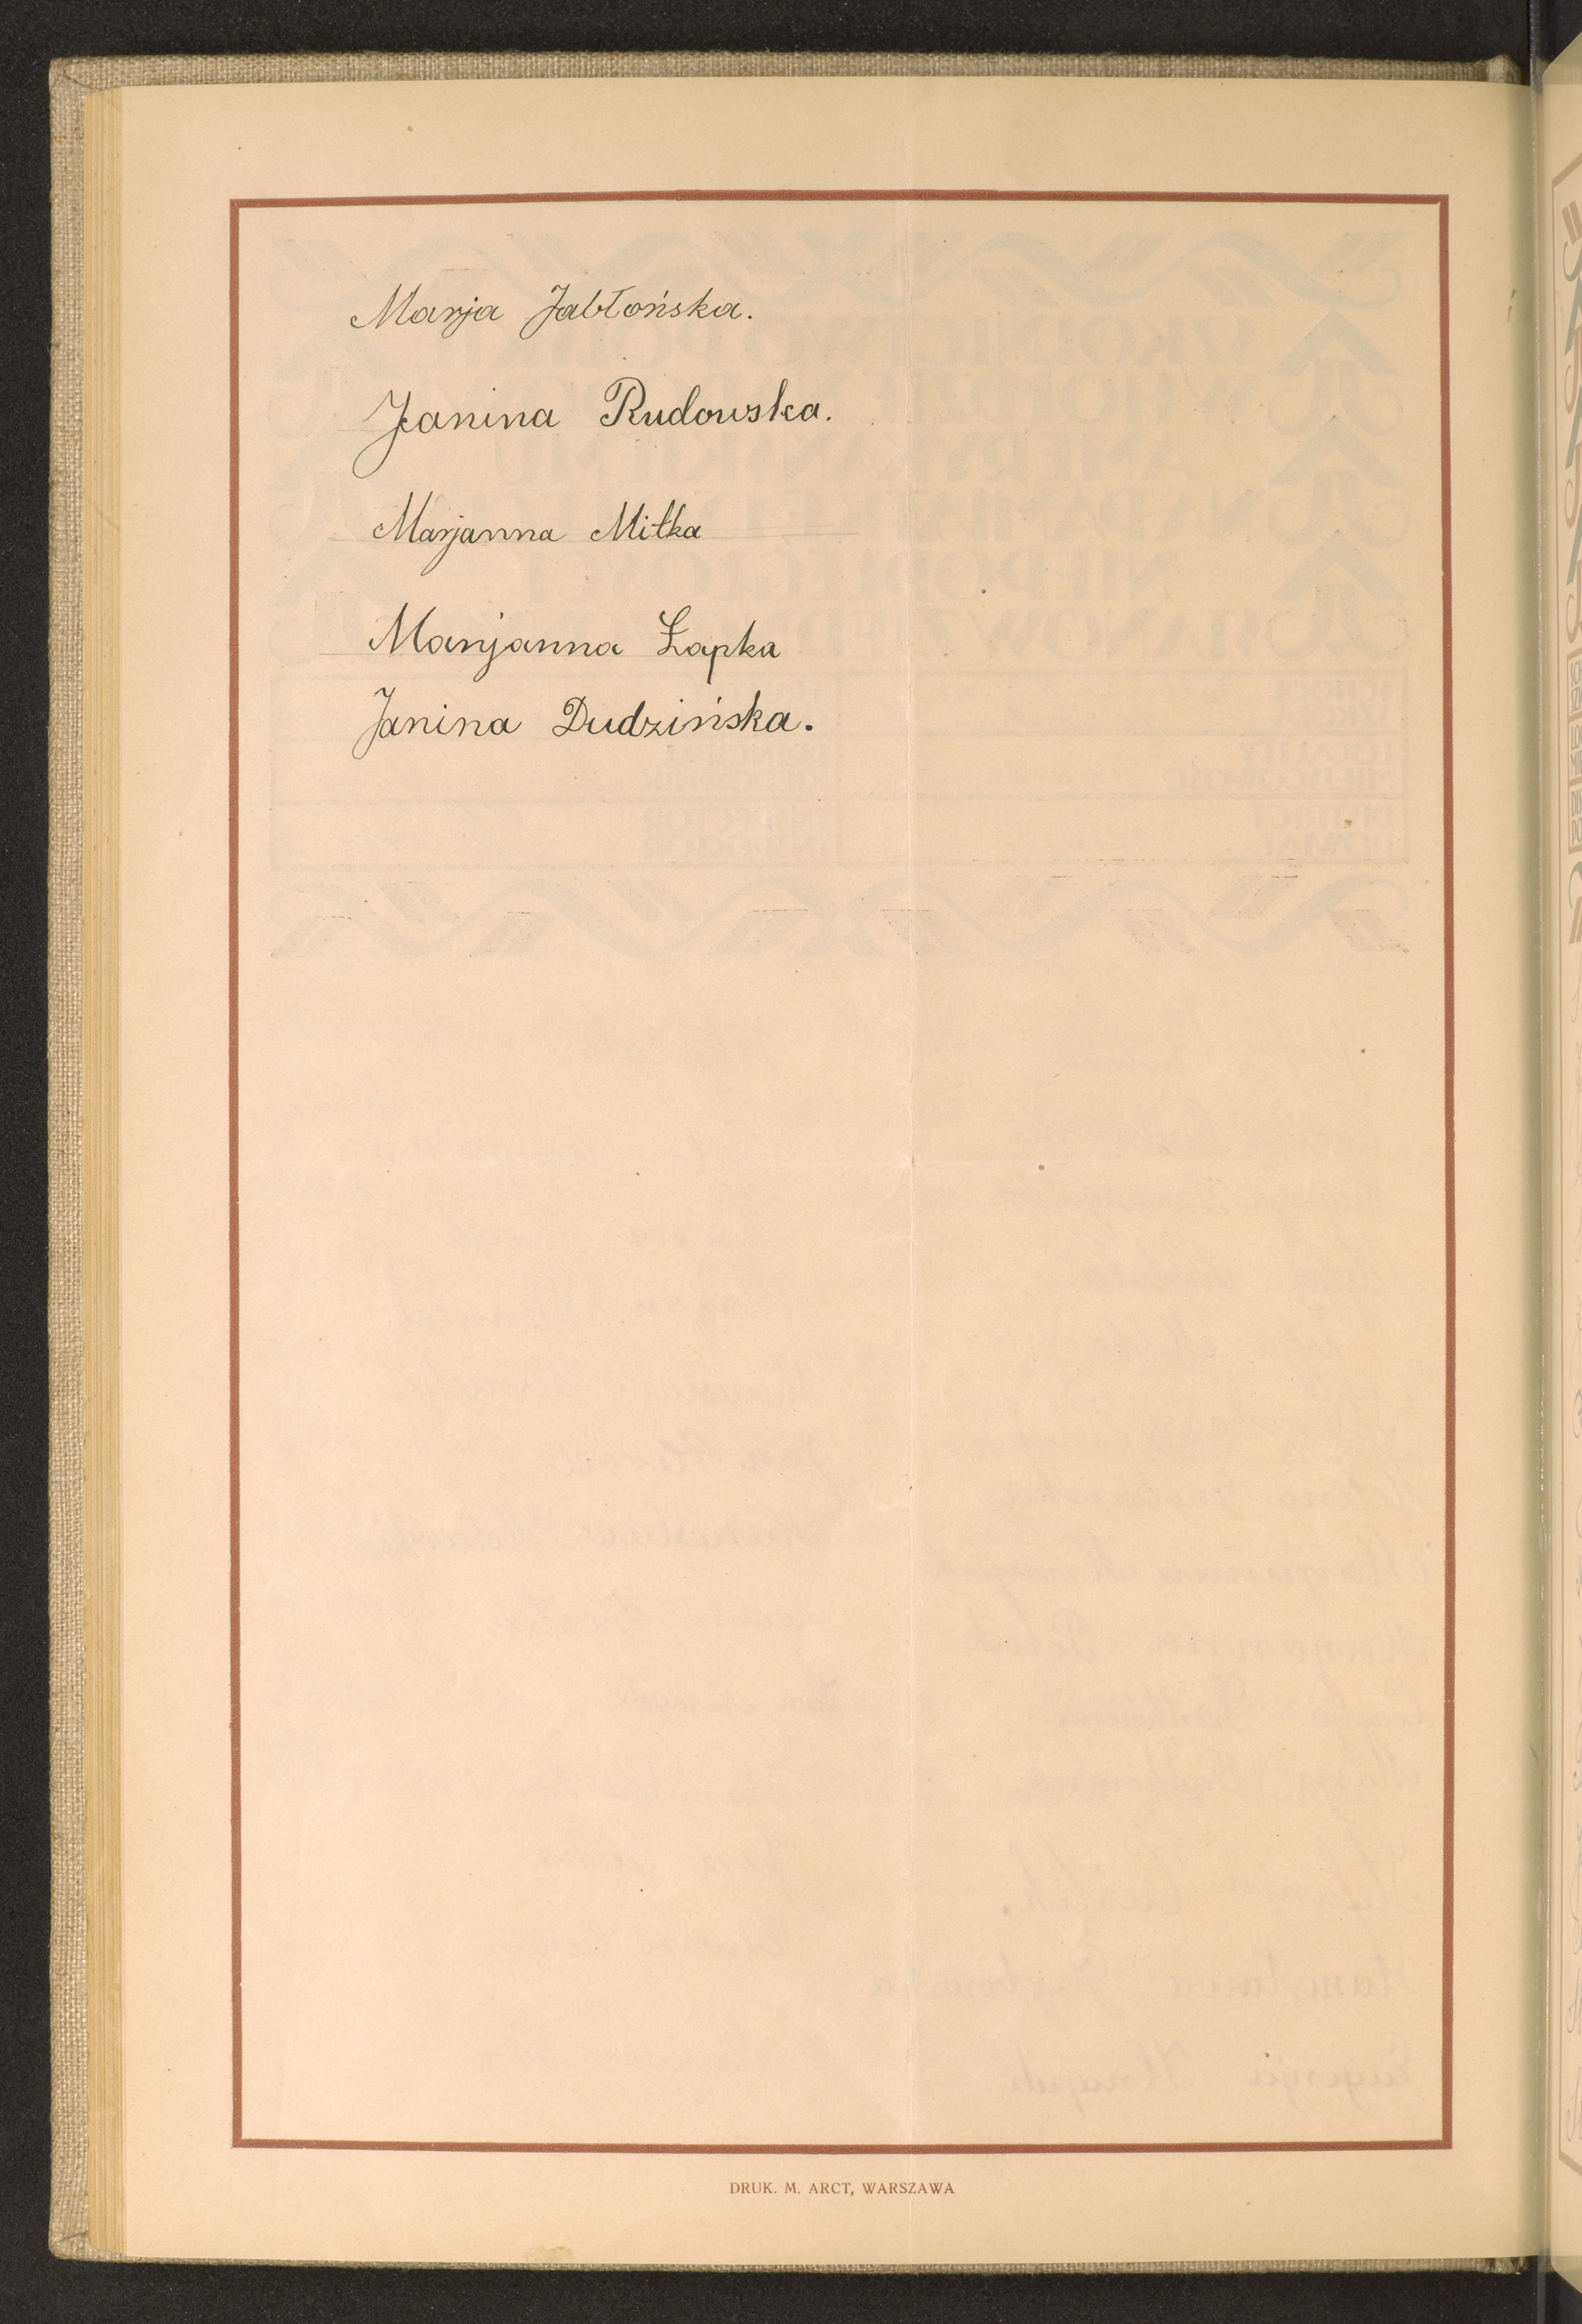 Marja Jabłońska.
Janina Rudowska.
Marjanna Mitka
Marjanna Łapka
Janina Dudzińska.
DRUK. M. ARCT, WARSZAWA